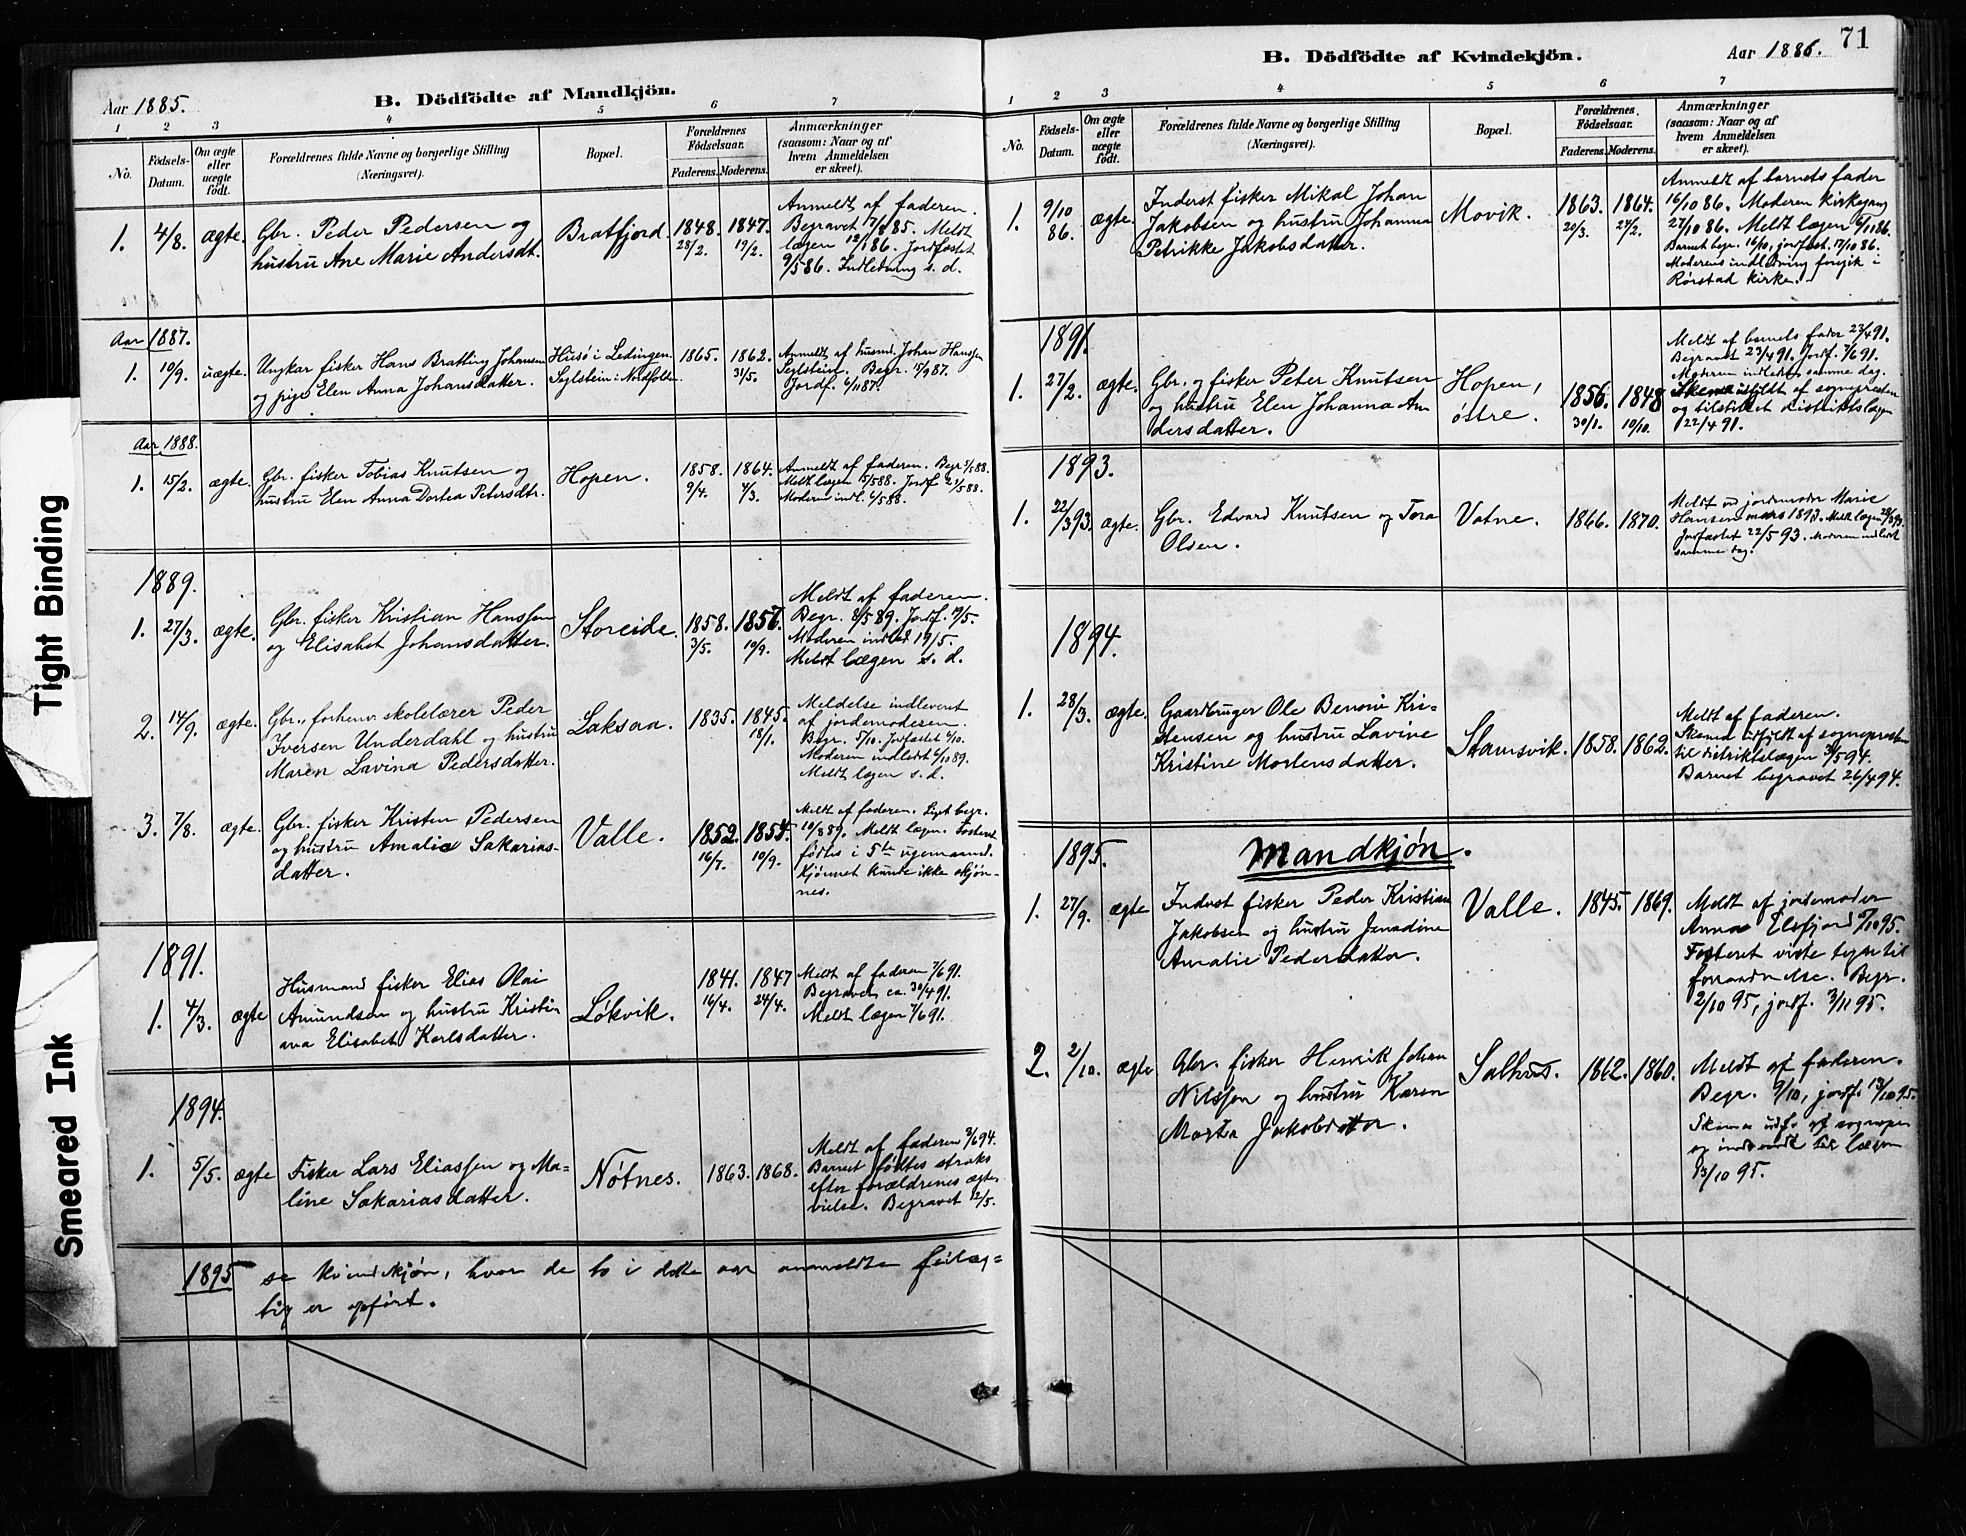 Aar 1885.
B. Dödfödte af Mandkjön.
1 2 3 4 5 6 7
No.
Födsels-
Datum.
Om ægte
eller
uægte
födt.
Forældrenes fulde Navne og borgerlige Stilling
(Næringsvei).
Bopæl.
Forældrenes
Födselsaar.
Faderens. Moderens.
Anmærkninger
(saasom: Naar og af
hvem Anmeldelsen
er skeet).
1. 4/8. ægte. Gbr. Peder Pedersen og
hustru Ane Marie Andersdt.
Bratfjord.
1848. 28/2.
1847. 19/2.
Anmeldt af faderen.
Begravet 17/8 85. Meldt
lægen 12/1 86. Jordfæstet
9/5 86. Indledning s. d.
Aar 1887.
1. 10/9. uægte. Ungkar fisker Hans Bratling Johansen
og pige Elen Anna Johansdatter.
Husö i Ledingen.
Seglstein i Nordfolden.
1865.
1862. 31/5.
Anmeldt af husmd. Johan Hanssen
Seglstein. Begr. 15/9 87.
Jordf. 6/11 87.
Aar 1888.
1. 15/2. ægte. Gbr. fisker Tobias Knutsen og
hustru Elen Anna Dortea Petersdtr.
Hopen.
1858. 9/4.
1864. 4/3.
Anmeldt af faderen. Begr.
Meldt lægen 15/5 88. Jordf. 21/5 88.
Moderen indl. 6/5 88.
1889.
1. 27/3. ægte. Gbr. fisker Kristian Hanssen
og Elisabet Johansdatter.
Storeide.
1858. 3/5.
1856. 10/9.
Meldt af faderen.
Begr. 8/5 89. Jordf. 19/5.
Moderen indled 19/5.
Meldt lægen s. d.
2. 14/9. ægte. Gbr., forhenv. skolelærer Peder
Iversen Underdahl og hustru
Maren Lavina Pedersdatter.
Laksaa.
1835.
1845. 18/1.
Meldelse indleveret
af jordemoderen.
Begr. 5/10. Jorfæstet 6/10.
Moderen indledt 6/10 89.
Meldt lægen s. d.
3. 7/8. ægte. Gbr. fisker Kristen Pedersen
og hustru Amalie Sakarias-
datter.
Valle.
1852. 16/7.
1854. 10/9.
Meldt af faderen. Liget begr.
10/8 89. Meldt lægen. Fosteret
fødtes i 5te ugemaaned.
Kjønnet kunde ikke skjøn-
nes.
1891.
1. 4/3. ægte Husmand fisker Elias Olai
Amundsen og hustru Kristi
ana Elisabet Karlsdatter.
Løkvik.
1841. 16/4.
1847 24/4.
Meldt af faderen 7/6 91.
Begravet ca. 30/4 91.
Meldt lægen 7/6 91.
1894.
1. 5/5. ægte Fisker Lars Eliassen og Ma-
line Sakariasdatter.
Nøtnes. 1863. 1868.
Meldt af faderen 3/6 94.
Barnet fødtes straks
efter forældrenes ægte-
vielse. Begravet 12/5.
1895 se Kvindekjøn, hvor de to i dette aar anmeldte feilag-
tig er opført.
71
B. Dödfödte af Kvindekjön.
Aar 1886.
1 2 3 4 5 6 7
No.
Födsels-
Datum.
Om ægte
eller
uægte
födt.
Forældrenes fulde Navne og borgerlige Stilling
(Næringsvei).
Bopæl.
Forældrenes
Födselsaar.
Faderens. Moderens.
Anmærkninger
(saasom: Naar og af
hvem Anmeldelsen
er skeet).
1. 9/10 86. ægte. Inderst fisker Mikal Johan
Jakobsen og hustru Johanna
Petrikke Jakobsdatter.
Movik.
1863. 20/3.
1864. 24/2.
Anmeldt af barnets fader
16/10 86. Moderen kirkegang
27/10 86. Meldt lægen 6/11 86.
Barnet begr. 16/10, jordfæst. 17/10 86.
Moderens indledning foregik i
Rørstad kirke.
1891.
1. 27/2. ægte. Gbr. og fisker Peter Knutsen
og hustru Elen Johanna An
dersdatter.
Hopen,
østre.
1856. 30/1.
1848 10/10.
Meldt af barnets fader 23/4 91.
Begravet 23/4 91. Jordf. 7/6 91.
Moderen indledtes samme dag.
Skema udfyldt af sognepresten
og tilstillet distriktslægen
22/4 91.
1893.
1. 22/3 93. ægte. Gbr. Edvard Knutsen og Tora
Olsen.
Vatne. 1866. 1870.
Meldt ved jordemoder Marie
Hansen mars 1893. Meldt lægen 28/3 93.
Jorfæstet 22/5 93. Moderen indledt
samme dag.
1894.
1. 28/3. ægte. Gaardbruger Ole Benoni Kri-
stensen og hustru Lavine
Kristine Mortensdatter.
Stamsvik. 1858. 1862.
Meldt af faderen.
Skema udfyldt af sognepresten
til distriktslægen 3/5 94.
Barnet begravet 26/4 94.
1895. Mandkjøn.
1. 27/9. ægte Inderst fisker Peder Kristian
Jakobsen og hustru Jenadine
Amalie Pedersdatter.
Valle. 1845. 1869.
Meldt af jordemoder
Anna Elsfjord 5/10 95.
Fosteret viste tegn til
forraadnelse. Begr.
2/10 95, jordf. 3/11 95.
2. 2/10. ægte Gbr. fisker Henrik Johan
Nilssen og hustru Karen
Marta Jakobsdatter.
Salhus. 1862. 1860.
Meldt af faderen.
Begr. 9/10, jordf. 13/10 95.
Skema udf. af sognepr.
og indsendt til lægen
13/10 95.
Tight Binding
Smeared Ink